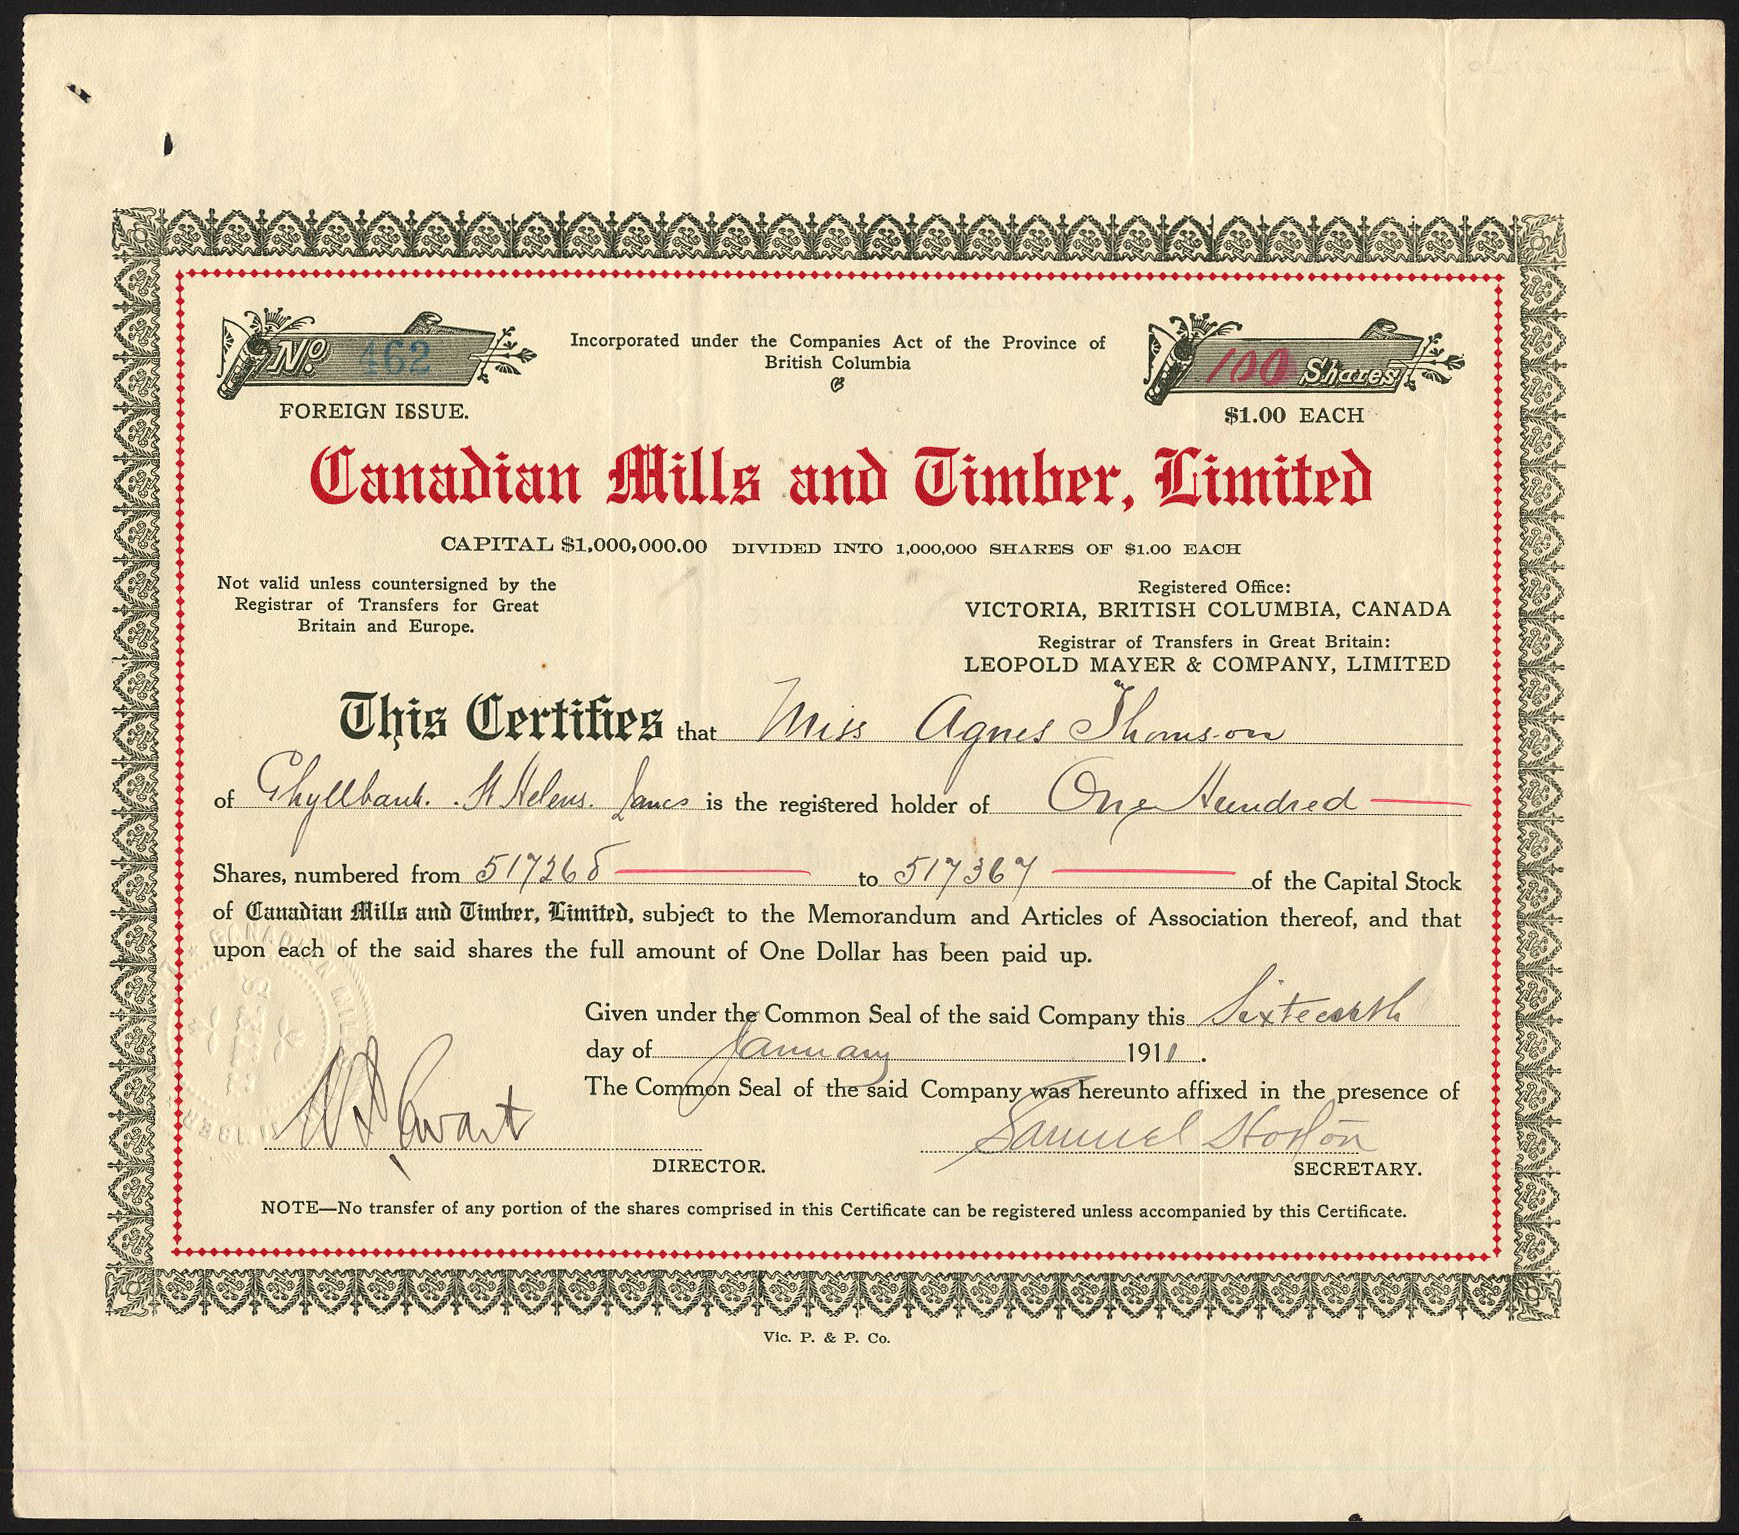 No. 462
Incorporated under the Companies Act of the Province of
British Columbia
100 Shares
FOREIGN ISSUE.
$1.00 EACH
Canadian Mills and Timber, Limited
CAPITAL $1,000,000.00 DIVIDED INTO 1,000,000 SHARES OF $1.00 EACH
Not valid unless countersigned by the
Registrar of Transfers for Great
Britain and Europe.
Registered Office:
VICTORIA, BRITISH COLUMBIA, CANADA
Registrar of Transfers in Great Britain:
LEOPOLD MAYER & COMPANY, LIMITED
This Certifies that Miss Agnes Thomson
of Ghyllbank. St Helens. Lancs is the registered holder of One Hundred
Shares, numbered from 517268 to 517367 of the Capital Stock
of Canadian Mills and Timber, Limited, subject to the Memorandum and Articles of Association thereof, and that
upon each of the said shares the full amount of One Dollar has been paid up.
Given under the Common Seal of the said Company this Sixteenth
day of January 1911.
The Common Seal of the said Company was hereunto affixed in the presence of
Samuel
DIRECTOR.
SECRETARY.
NOTE—No transfer of any portion of the shares comprised in this Certificate can be registered unless accompanied by this Certificate.
Vic. P. & P. Co.